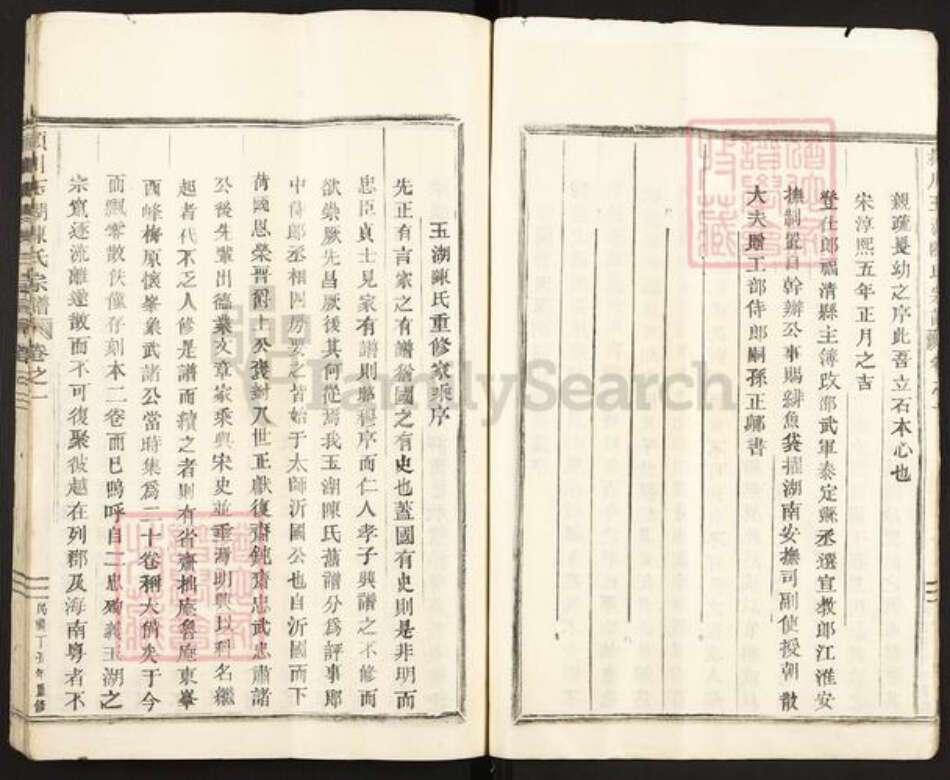 親疏長幼之序此吾立石本心也
宋淳熙五年正月之吉
登仕郎福清縣主簿改邵武軍泰定縣丞選宣教郎江淮安
撫制置司幹辦公事賜緋魚袋擢湖南安撫司副使授朝散
大夫贈工部侍郎嗣孫正 書
玉湖陳氏重修家乘序
先正有言家之有譜猶國之有史也蓋國有史則是非明而
忠臣貞士見家有譜則昭穆序而仁人孝子興譜之不修而
欲崇厥先昌厥後其何從焉我玉湖陳氏舊譜分為評事郎
中侍郎丞相四房要之皆始于太師沂國公也自沂國而下
荷國恩榮晉爵上公褒封八世正獻復齋鈍齋忠武忠肅諸
公後先輩出德業文章家乘與宋史並重焉明興以科名繼
起者代不乏人修是譜而續之者則有省齋拙庵魯庵東峯
西峰梅原懷峯象武諸公當時集為二十卷稱大備矣于今
而飄零散佚僅存刻本二卷而已嗚呼自二忠殉義玉湖之
宗 逐流離遠散而不可復聚彼越在列郡及海南粵者不
湖陳氏宗譜 卷之一
民國丁 年重修
FamilySearch